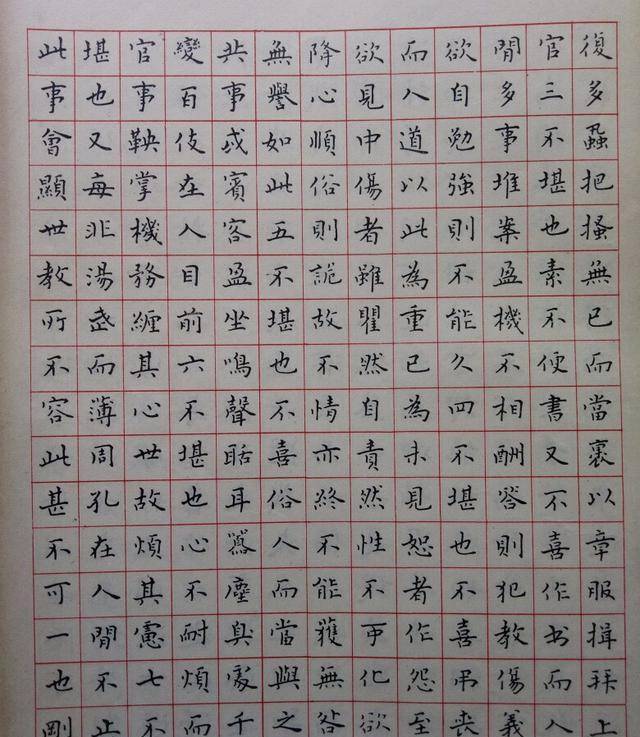 復多蝨把搔無已而當裹以章服揖拜上
官三不堪也素不便書又不喜作书而人
閒多事堆案盈機不相酬答則犯教傷義
欲自勉強則不能久四不堪也不喜弔喪
而人道以此為重已為未見恕者作怨至
欲見中傷者雖瞿然自責然性不可化欲
降心順俗則詭故不情亦終不能獲無咎
無譽如此五不堪也不喜俗人而當與之
共事或賓客盈坐鳴聲聒耳囂塵臭處千
變百伎在人目前六不堪也心不耐煩而
官事鞅掌機務纏其心世故煩其慮七不
堪也又每非湯武而薄周孔在人閒不止
此事會顯世教所不容此甚不可一也剛